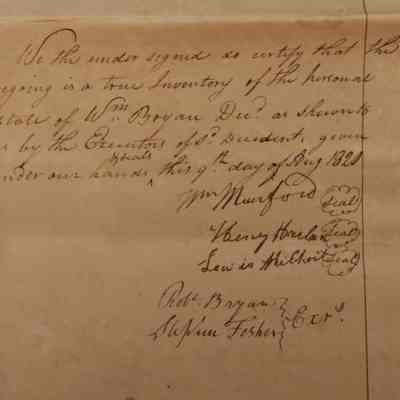 We the under signed do certify that the
egoing is a true Inventory of the personal
state of Wm Bryan Decd. as shewn to
s by the Executors of sd. Decedent, given
& seals
nder our hands, this 9th day of Aug 1821
Wm Mumford Seal
Henry Harlan Seal
Lewis Seal
Robt. Bryan
Stephen Fosher } Exrs.